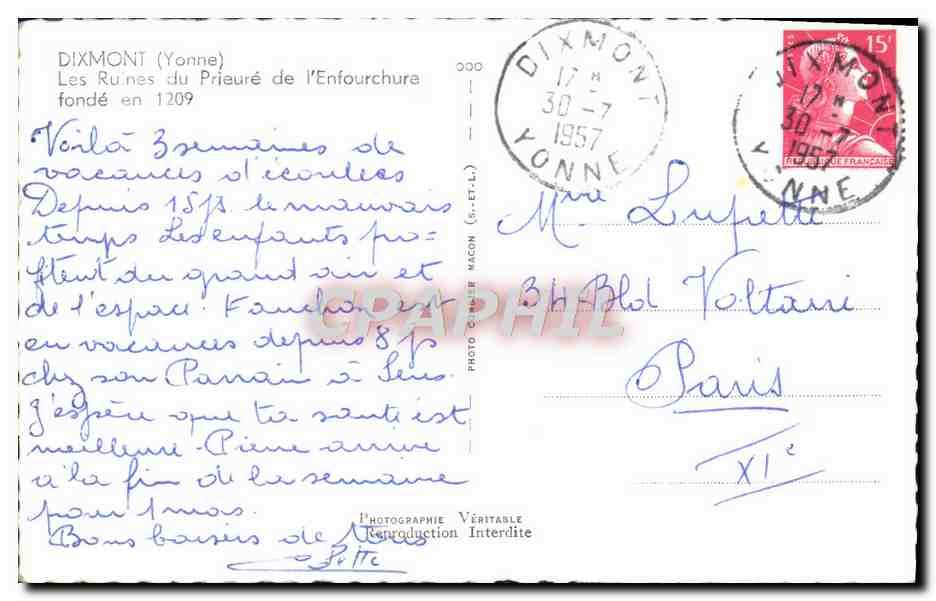 DIXMONT (Yonne)
Les Ruines du Prieuré de l'Enfourchure
fondé en 1209
Voilà 3 semaines de
vacances d'écoulées
Depuis 15 js. le mauvais
temps Les enfants pro-
fitent du grand air et
de l'espace. Fanchon est
en vacances depuis 8 js
chez son Parrain à Sens.
J'espère que ta santé est
meilleure. Pierre arrive
à la fin de la semaine
pour 1 mois.
Bons baisers de tous
PHOTOGRAPHIE VÉRITABLE
Reproduction Interdite
PHOTO COMBIER MACON (S.-ET-L.)
DIXMONT
17 H
30 -7
1957
YONNE
15F
REPUBLIQUE FRANCAISE
DIXMONT
17 H
30 -7
1957
YONNE
Mme
34 Bld Voltaire
Paris
XIe
CPAPHIL